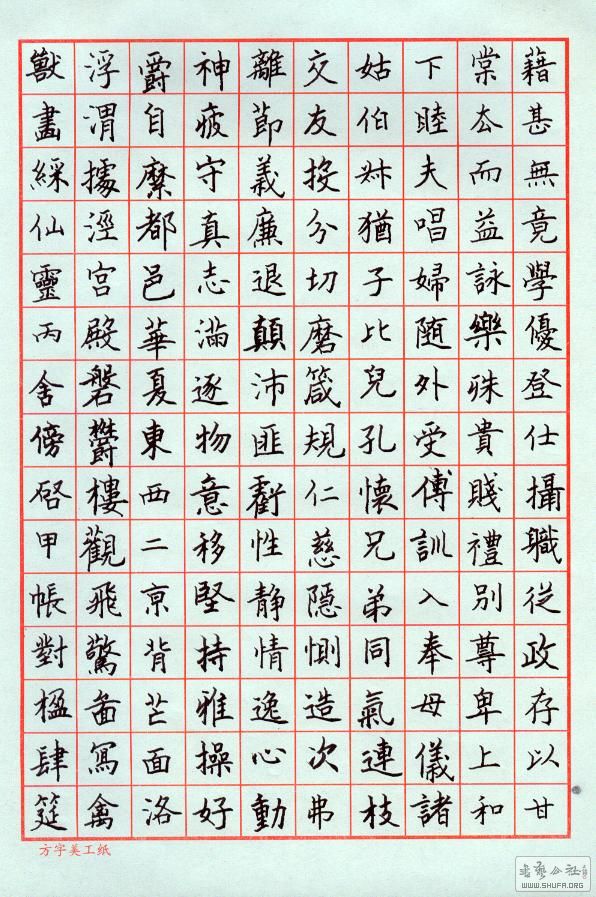 藉甚無竟學優登仕攝職從政存以甘
棠去而益詠樂殊貴賤禮別尊卑上和
下睦夫唱婦随外受傅訓入奉母儀諸
姑伯叔猶子比兒孔懷兄弟同氣連枝
交友投分切磨箴規仁慈隱惻造次弗
離節義廉退顛沛匪虧性静情逸心動
神疲守真志滿逐物意移堅持雅操好
爵自縻都邑華夏東西二京背芒面洛
浮渭據涇宮殿磐鬱樓觀飛驚啚寫禽
獸畫綵仙靈丙舍傍啓甲帳對楹肆筵
方字美工纸
WWW.SHUFA.ORG